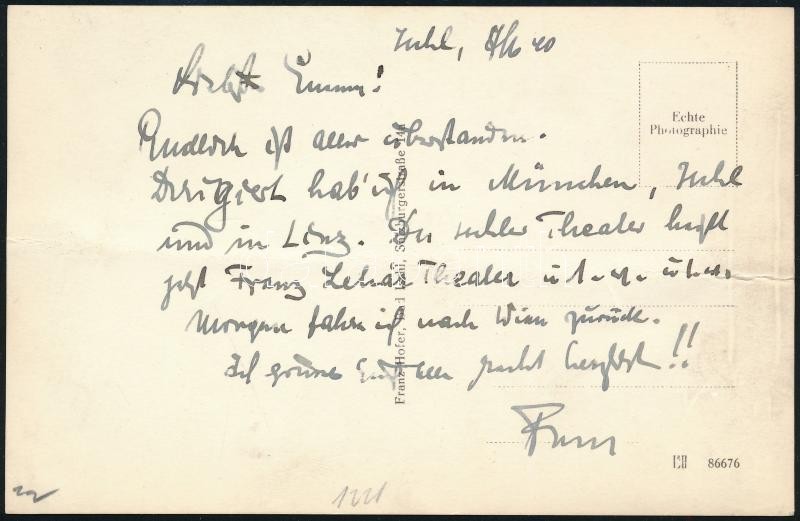 Ischl, 8/6 40
Liebste Emmy!
Endlich ist alles überstanden.
Dirigiert hab' ich in München, Ischl
und in Linz. Das Ischler Theater heißt
jetzt Franz Lehar Theater u.s.w. u.s.w.
Morgen fahre ich nach Wien zurück.
Ich grüsse Euch alle recht herzlichst!!
Franz
Echte
Photographie
Franz Hofer, Bad Ischl, Salzburgerstraße 14a
86676